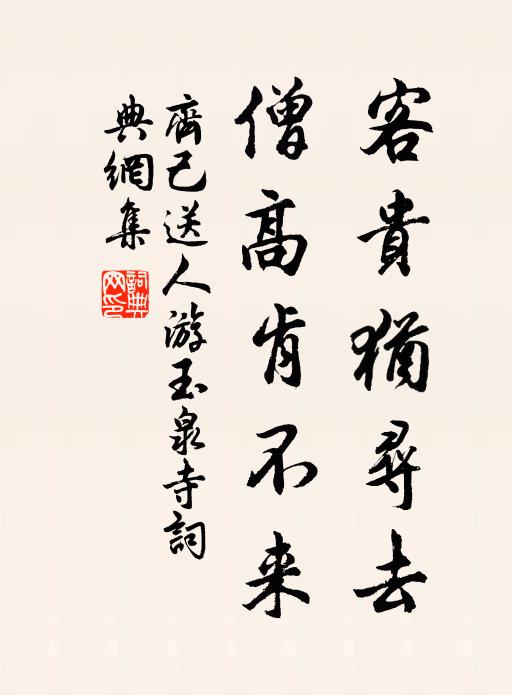 客貴猶尋去
僧高肯不来
齊己送人游玉泉寺詞
典網集
詞典網印